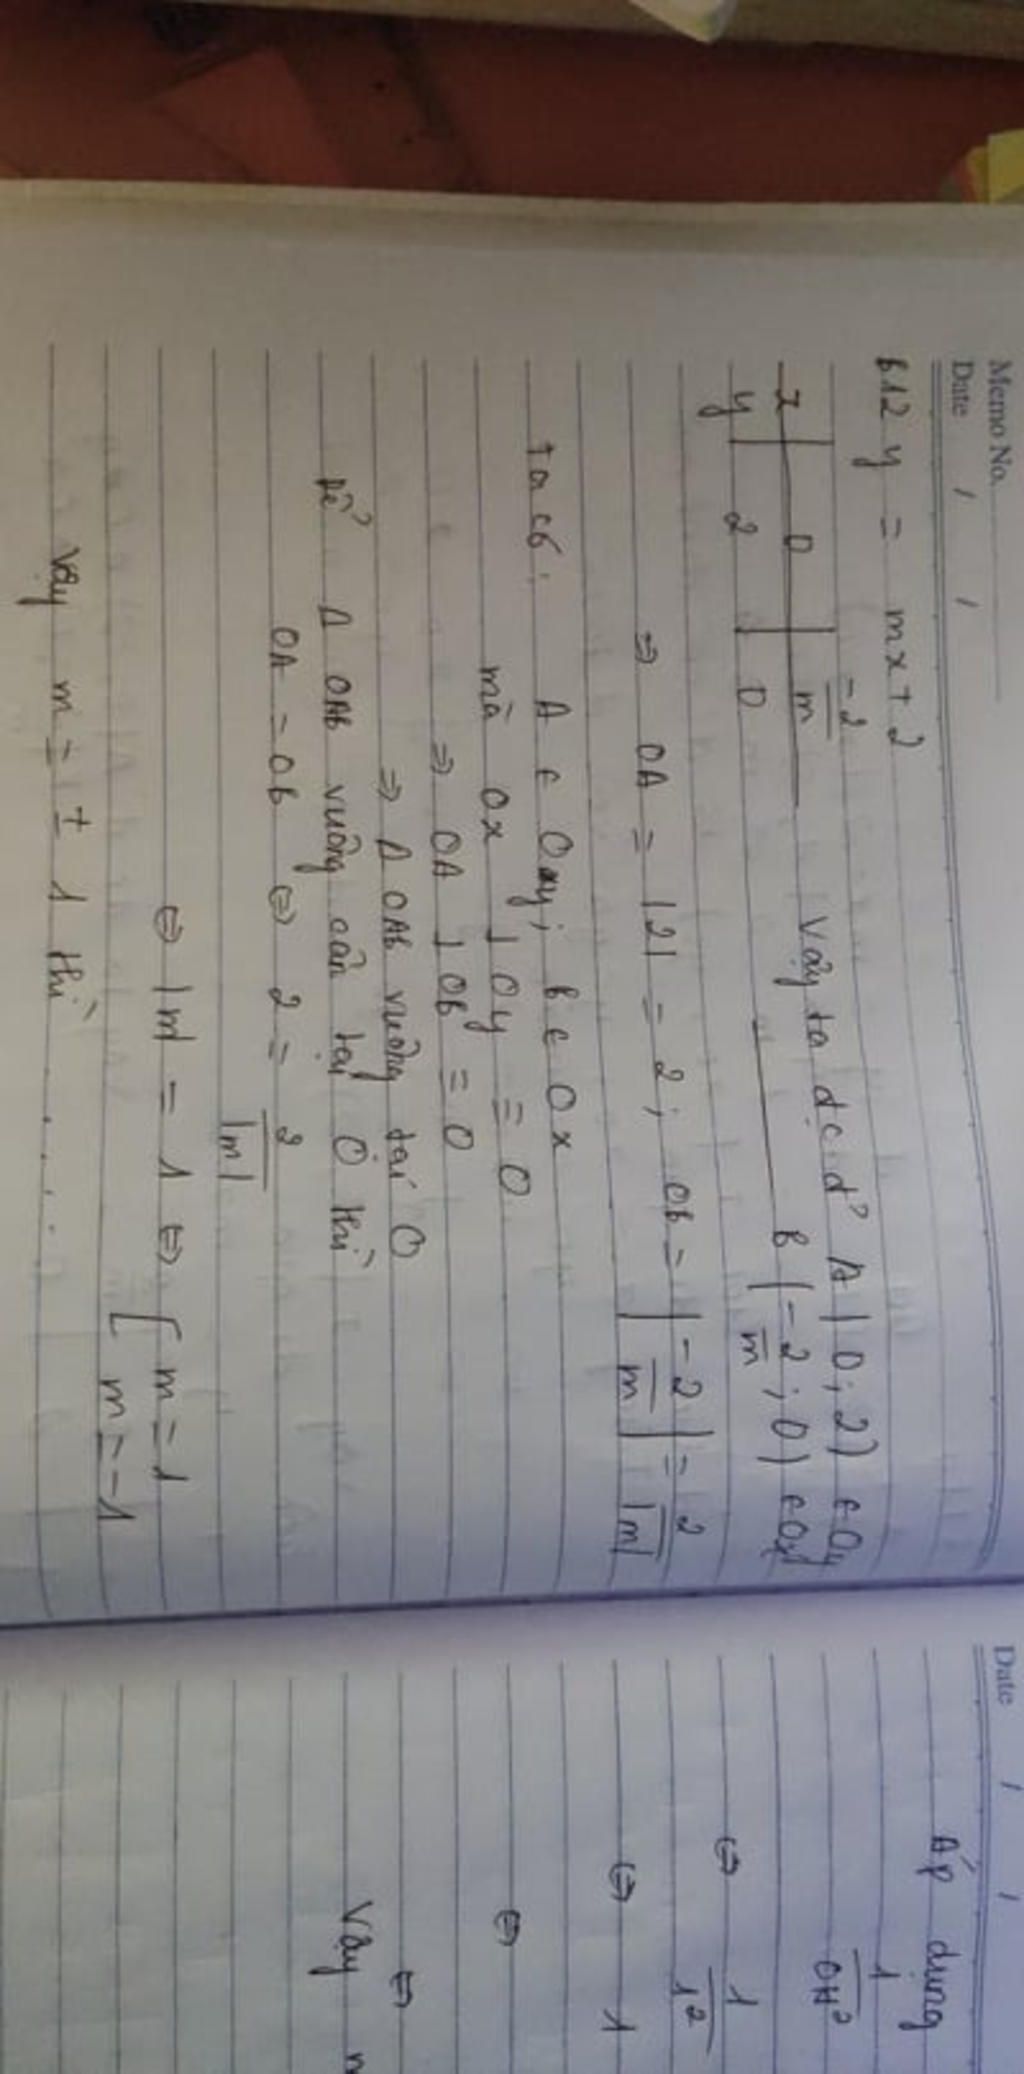 Memo No.
Date / /
b12 y = mx + 2
x | 0 | -2/m
y | 2 | 0
Vậy ta đc đ' A (0; 2) ∈ Oy
B (-2/m; 0) ∈ Ox
⇒ OA = |2| = 2; OB = |-2/m| = 2/|m|
Ta có: A ∈ Oy; B ∈ Ox
mà Ox ⊥ Oy = 0
⇒ OA ⊥ OB = 0
⇒ Δ OAB vuông tại O
Để Δ OAB vuông cân tại O thì
OA = OB ⇔ 2 = 2/|m|
⇔ |m| = 1 ⇔ [ m = 1
m = -1
Vậy m = ± 1 thì .....
Date / /
Áp dụng
1/OH²
⇔ 1/1²
⇔ 1
⇔
⇔
Vậy